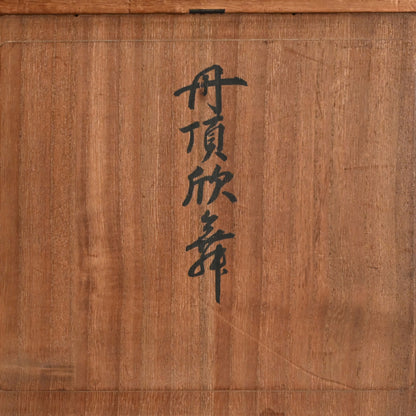 丹頂欣舞